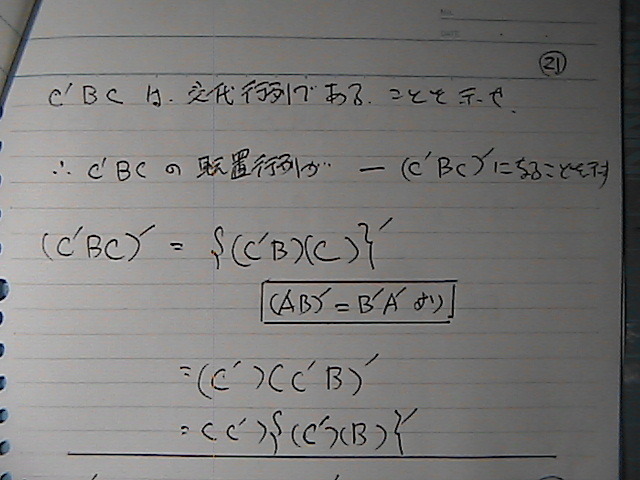 ㉑
C'BCは、交代行列である。ことを示せ.
∴ C'BCの転置行列が －(C'BC)'になることを示す
(C'BC)' = {(C'B)(C)}'
(AB)' = B'A' より
=(C')(C'B)'
=(C'){(C')(B)}'